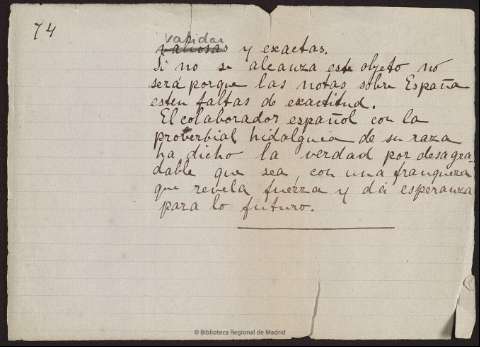 74
validas
valiosas y exactas.
Si no se alcanza este objeto no
será porque las notas sobre España
esten faltas de exactitud.
El colaborador español con la
proverbial hidalguia de su raza
ha dicho la verdad por desagra-
dable que sea, con una franqueza
que revela fuerza y dá esperanza
para lo futuro.
© Biblioteca Regional de Madrid